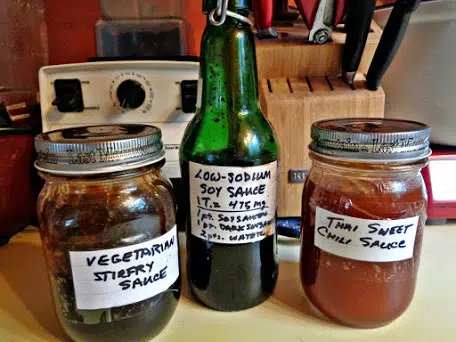 VEGETARIAN
STIRFRY
SAUCE
LOW-SODIUM
SOY SAUCE
1 T. = 475 mg
1 pt. SOY SAUCE
1 pt. DARK SOY
2 pts. WATER
THAI SWEET
CHILI SAUCE